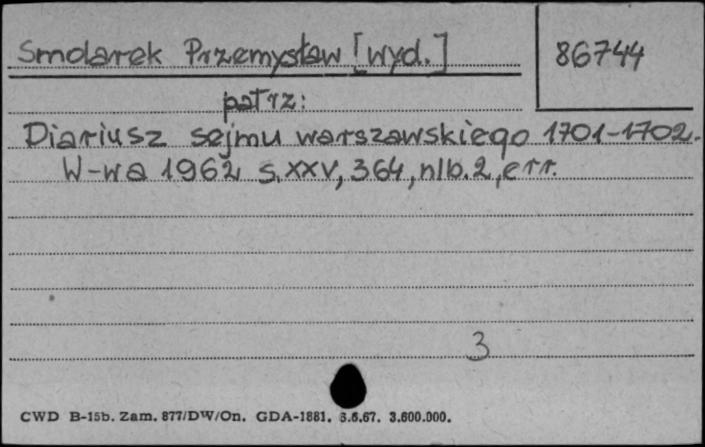 Smolarek Przemysław [wyd.]
86744
patrz:
Diariusz sejmu warszawskiego 1701-1702.
W-wa 1962 s. XXV, 364, nlb. 2, err.
3
CWD B-15b. Zam. 877/DW/On. GDA-1881. 6.5.67. 3.600.000.